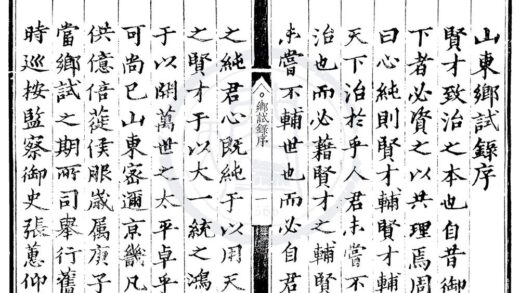 山東鄉試錄序
賢才致治之本也自昔御
下者必資之以共理焉周
曰心純則賢才輔賢才輔
天下治於乎人君未嘗不
治也而必藉賢才之輔賢
未嘗不輔世也而必自君
鄉試錄序
一
之純君心既純于以用天
之賢才于以大一統之鴻
于以開萬世之太平卓乎
可尚已山東密邇京畿凡
供億倍蓰侯服歲属庚子
當鄉試之期所司舉行舊
時巡按監察御史張蕙仰